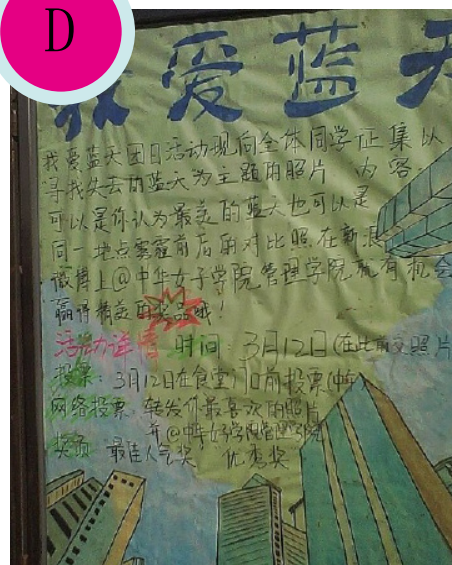 D
我爱蓝天
我爱蓝天团日活动现向全体同学征集以
寻找失去的蓝天为主题的照片 内容
可以是你认为最美的蓝天也可以是
同一地点雾霾前后的对比照.在新浪
微博上@中华女子学院管理学院就有机会
赢得精美的奖品哦!
活动详情 时间:3月12日(在此前交照片
投票:3月12日在食堂门口前投票(中午)
网络投票:转发你最喜欢的照片
并@中华女子学院管理学院
奖项 最佳人气奖 优秀奖